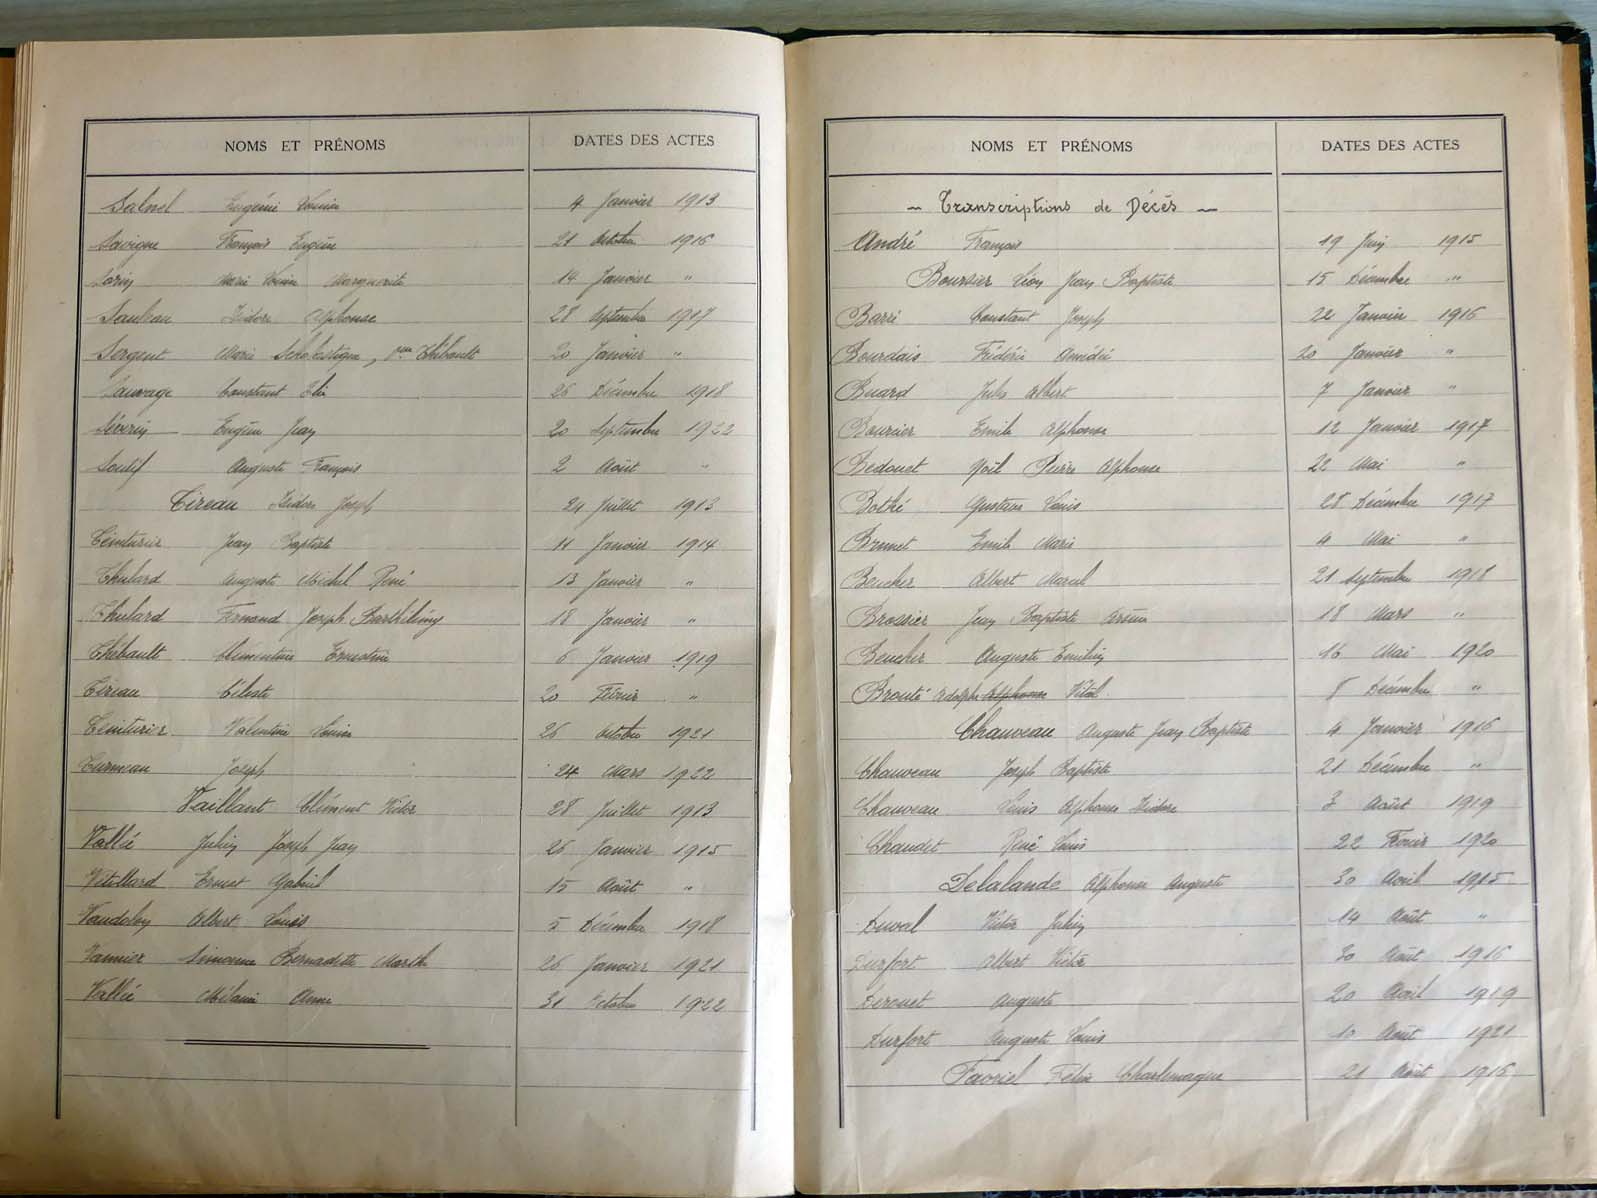 NOMS ET PRÉNOMS DATES DES ACTES
Salnel Eugénie Louise 4 Janvier 1913
Savigne François Eugène 21 Octobre 1916
Sorin Marie Louise Marguerite 14 Janvier "
Isidore Alphonse 28 Septembre 1917
Sergent Marie Scholastique, Vve Thébault 20 Janvier "
Sauvage Constant Elie 26 Décembre 1918
Séverin Eugène Jean 20 Septembre 1922
Soutif Auguste François 2 Août "
Tireau Isidore Joseph 24 Juillet 1913
Teinturier Jean Baptiste 11 Janvier 1914
Thulard Auguste Michel René 13 Janvier "
Thulard Fernand Joseph Barthélémy 18 Janvier "
Thébault Clémentine Ernestine 6 Janvier 1919
Tireau Céleste 20 Février "
Teinturier Valentine Louise 26 Octobre 1921
Turmeau Joseph 24 Mars 1922
Vaillant Clément Victor 28 Juillet 1913
Vallée Julien Joseph Jean 26 Janvier 1915
Vétillard Ernest Gabriel 15 Août "
Albert Louis 5 Décembre 1918
Vannier Simonne Bernadette Marthe 26 Janvier 1921
Vallée Mélanie Anne 31 Octobre 1922
NOMS ET PRÉNOMS DATES DES ACTES
~ Transcriptions de Décès ~
André François 19 Juin 1915
Boursier Léon Jean Baptiste 15 Décembre "
Barré Constant Joseph 22 Janvier 1916
Bourdais Frédéric Amédée 20 Janvier "
Buard Jules Albert 7 Janvier "
Bourcier Emile Alphonse 12 Janvier 1917
Bedouet Noël Pierre Alphonse 22 Mai "
Bothé Gustave Louis 28 Décembre 1917
Brunet Emile Marie 4 Mai "
Beucher Albert Marcel 21 Septembre 1918
Brossier Jean Baptiste Arsène 18 Mars "
Beucher Auguste Emilien 16 Mai 1920
Brouté Adolphe Alphonse Vital 8 Décembre "
Chauveau Auguste Jean Baptiste 4 Janvier 1916
Chauveau Joseph Baptiste 21 Décembre "
Chauveau Louis Alphonse Isidore 3 Août 1919
Chaudet René Louis 22 Février 1920
Delalande Alphonse Auguste 30 Avril 1915
Duval Victor Julien 14 Août "
Durfort Albert Victor 30 Août 1916
Derouet Auguste 20 Avril 1919
Durfort Auguste Louis 10 Août 1921
Favriel Félix Charlemagne 21 Août 1916